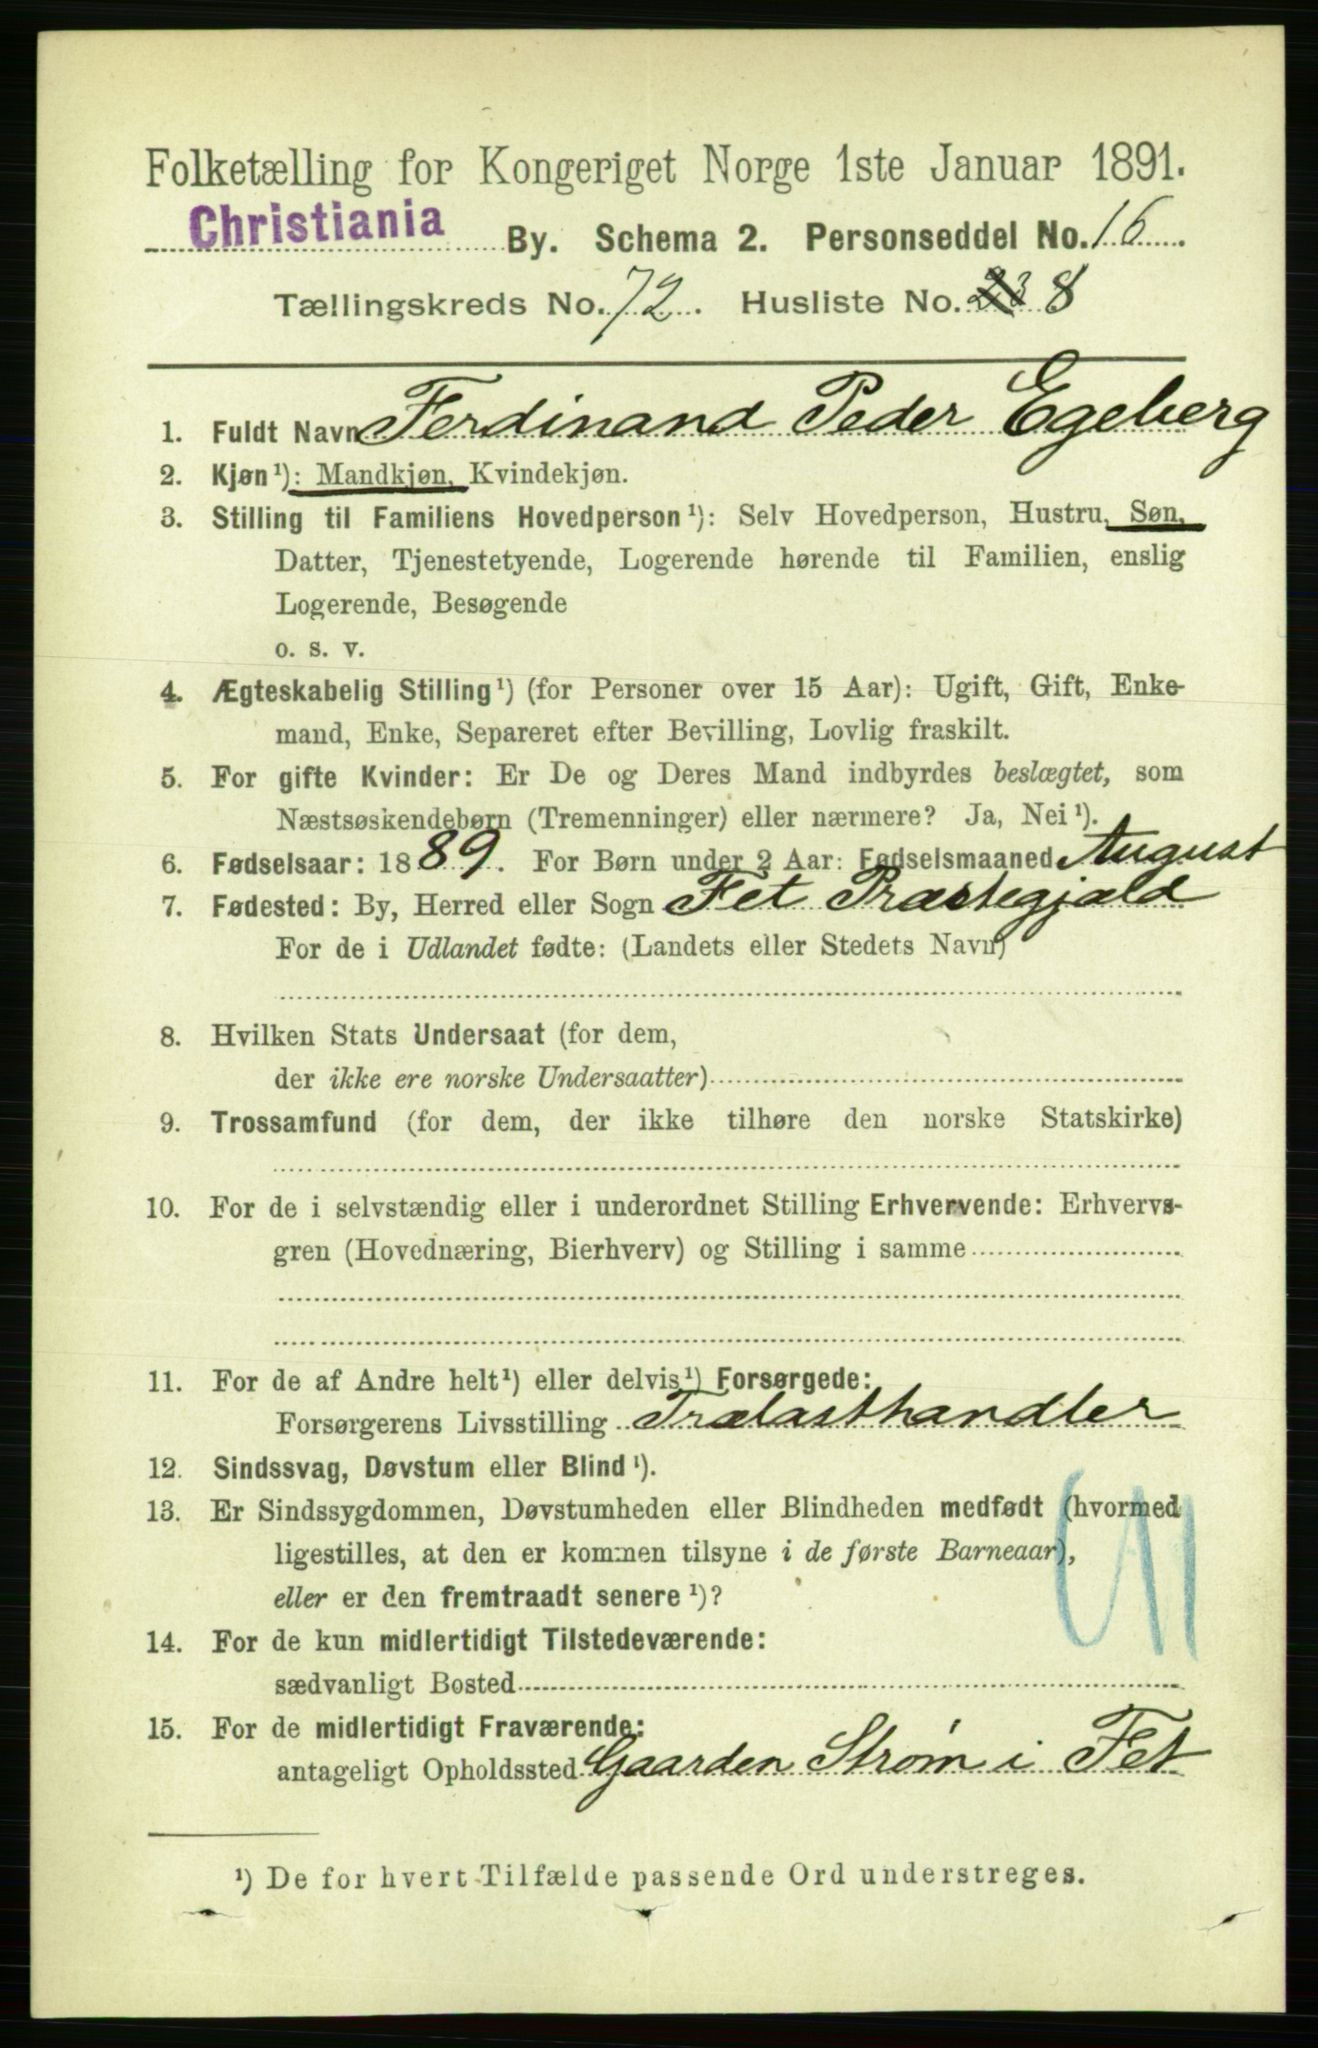 Folketælling for Kongeriget Norge 1ste Januar 1891.
Christiania By. Schema 2. Personseddel No. 16
Tællingskreds No. 72. Husliste No. 8
1. Fuldt Navn Ferdinand Peder Egeberg
2. Kjøn¹): Mandkjøn, Kvindekjøn.
3. Stilling til Familiens Hovedperson¹): Selv Hovedperson, Hustru, Søn,
Datter, Tjenestetyende, Logerende hørende til Familien, enslig
Logerende, Besøgende
o. s. v.
4. Ægteskabelig Stilling¹) (for Personer over 15 Aar): Ugift, Gift, Enke-
mand, Enke, Separeret efter Bevilling, Lovlig fraskilt.
5. For gifte Kvinder: Er De og Deres Mand indbyrdes beslægtet, som
Næstsøskendebørn (Tremenninger) eller nærmere? Ja, Nei¹).
6. Fødselsaar: 1889. For Børn under 2 Aar: Fødselsmaaned August
7. Fødested: By, Herred eller Sogn Fet Præstegjald
For de i Udlandet fødte: (Landets eller Stedets Navn)
8. Hvilken Stats Undersaat (for dem,
der ikke ere norske Undersaatter)
9. Trossamfund (for dem, der ikke tilhøre den norske Statskirke)
10. For de i selvstændig eller i underordnet Stilling Erhvervende: Erhvervs-
gren (Hovednæring, Bierhverv) og Stilling i samme
11. For de af Andre helt¹) eller delvis¹) Forsørgede:
Forsørgerens Livsstilling Trælasthandler
12. Sindssvag, Døvstum eller Blind¹).
13. Er Sindssygdommen, Døvstumheden eller Blindheden medfødt (hvormed
ligestilles, at den er kommen tilsyne i de første Barneaar),
eller er den fremtraadt senere¹)?
14. For de kun midlertidigt Tilstedeværende:
sædvanligt Bosted
15. For de midlertidigt Fraværende:
antageligt Opholdssted Gaarden Strøm i Fet
¹) De for hvert Tilfælde passende Ord understreges.